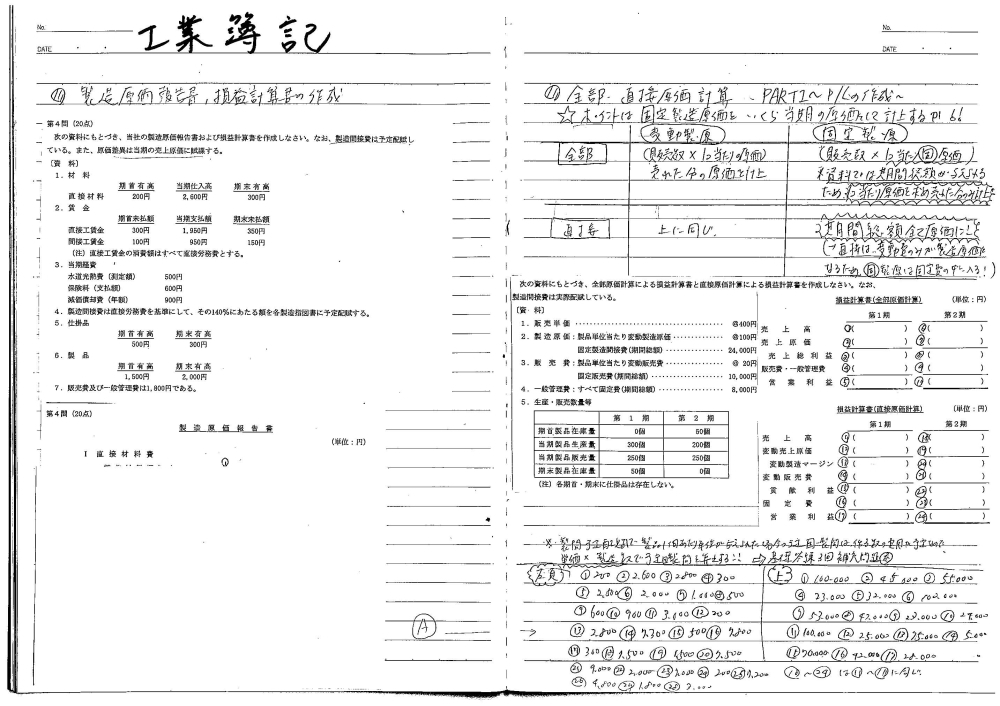 No.
DATE
工業簿記
⑩ 製造原価報告書,損益計算書の作成
第4問(20点)
次の資料にもとづき、当社の製造原価報告書および損益計算書を作成しなさい。なお、製造間接費は予定配賦し
ている。また、原価差異は当期の売上原価に賦課する。
〔資 料〕
1.材 料
期首有高 当期仕入高 期末有高
直接材料 200円 2,600円 300円
2.賃 金
期首未払額 当期支払額 期末未払額
直接工賃金 300円 1,950円 350円
間接工賃金 100円 950円 150円
(注)直接工賃金の消費額はすべて直接労務費とする。
3.当期経費
水道光熱費(測定額) 500円
保険料(支払額) 600円
減価償却費(年額) 900円
4.製造間接費は直接労務費を基準にして、その140%にあたる額を各製造指図書に予定配賦する。
5.仕掛品
期首有高 期末有高
500円 300円
6.製 品
期首有高 期末有高
1,500円 2,000円
7.販売費及び一般管理費は1,800円である。
第4問(20点)
製造原価報告書
(単位:円)
Ⅰ 直接材料費
①
Ⓐ
No.
DATE
⑪ 全部・直接原価計算 、PART1~P/Lの作成~
☆ポイントは固定製造原価をいくら当期の原価として計上するか!!
変動製・原 固定製・原
全部 (販売数×1コ当たりの原価) (販売数×1コ当たり固原価)
売れた分の原価を計上 ※資料では期間総額が与えられる
ため
直接 上に同じ. 期間総額全て原価に!
(→直接は、変動費のみが製造原価に
なるため、固製原は固定費の中に入る!)
次の資料にもとづき、全部原価計算による損益計算書と直接原価計算による損益計算書を作成しなさい。なお、
製造間接費は実際配賦している。
〔資・料〕
1.販売単価 @400円
2.製造原価:製品単位当たり変動製造原価 @100円
固定製造間接費(期間総額) 24,000円
3.販 売 費:製品単位当たり変動販売費 @ 20円
固定販売費(期間総額) 10,000円
4.一般管理費:すべて固定費(期間総額) 8,000円
5.生産・販売数量等
第 1 期 第 2 期
期首製品在庫量 0個 50個
当期製品生産量 300個 200個
当期製品販売量 250個 250個
期末製品在庫量 50個 0個
(注)各期首・期末に仕掛品は存在しない。
損益計算書(全部原価計算) (単位:円)
第1期 第2期
売 上 高 ①( ) ⑥( )
売 上 原 価 ②( ) ⑦( )
売 上 総 利 益 ③( ) ⑧( )
販売費・一般管理費 ④( ) ⑨( )
営 業 利 益 ⑤( ) ⑩( )
損益計算書(直接原価計算) (単位:円)
第1期 第2期
売 上 高 ⑪( ) ⑱( )
変動売上原価 ⑫( ) ⑲( )
変動製造マージン ⑬( ) ⑳( )
変動販売費 ⑭( ) ㉑( )
貢 献 利 益 ⑮( ) ㉒( )
固 定 費 ⑯( ) ㉓( )
営 業 利 益 ⑰( ) ㉔( )
左頁 ①200 ②2.600 ③2.800 ④300
⑤2.500 ⑥2.000 ⑦1.000 ⑧500
⑨600 ⑩900 ⑪3.000 ⑫200
→ ⑬2.800 ⑭7.300 ⑮500 ⑯7.800
⑰300 ⑱7.500 ⑲1.500 ⑳7.500
㉑9.000 ㉒2.000 ㉓7.000 ㉔200 ㉕7.200
上 ①100.000 ②45.000 ③55.000
④23.000 ⑤32.000 ⑥100.000
⑦53.000 ⑧47.000 ⑨23.000 ⑩24.000
⑪100.000 ⑫25.000 ⑬75.000 ⑭5.000
⑮70.000 ⑯42.000 ⑰28.000
⑱~㉔は⑪~⑰に同じ.